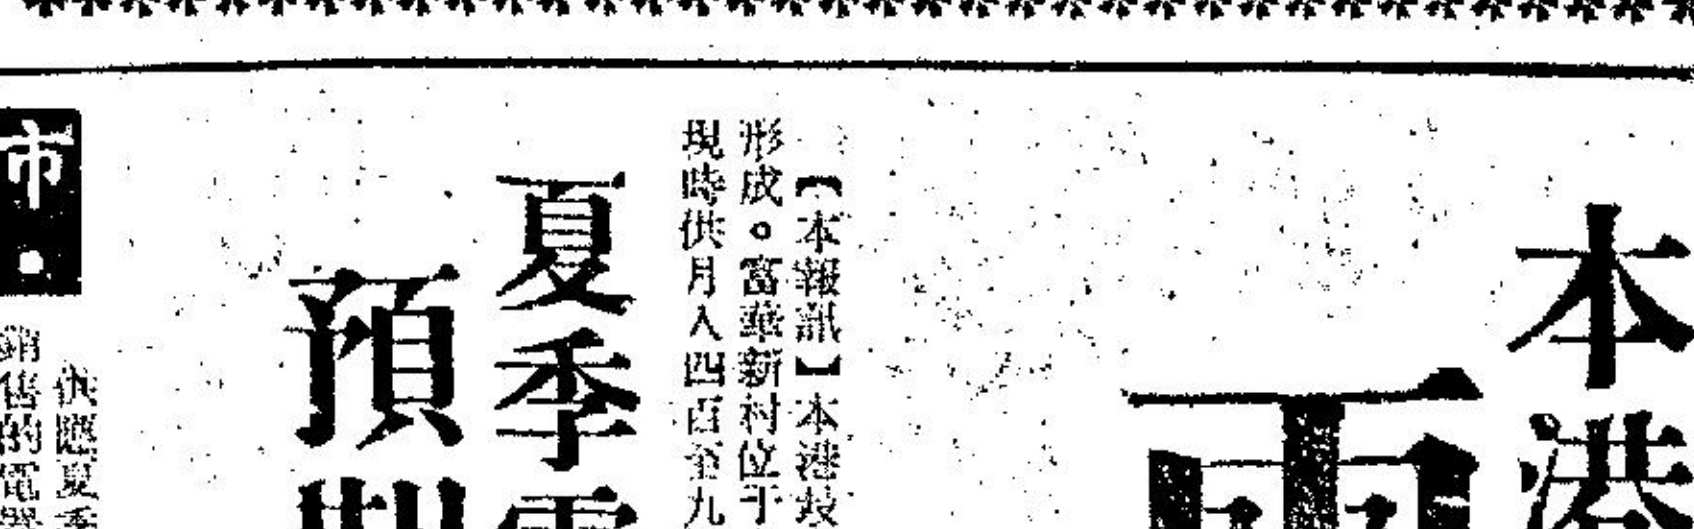 本港
【本報訊】本港
形成。富華新村位于
現時供月入四百至九
夏季
預
市·
供應夏季
銷售的電器